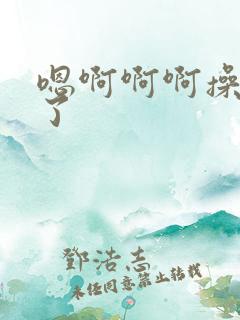 嗯啊啊啊操
了
鄧浩志
未经同意禁止转载